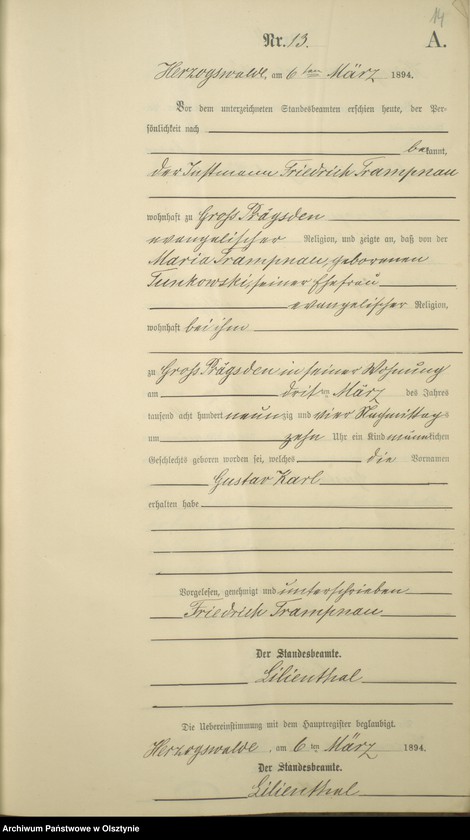 14
Nr. 13.
A.
Herzogswalde, am 6ten März 1894.
Vor dem unterzeichneten Standesbeamten erschien heute, der Per-
sönlichkeit nach
bekannt,
der Instmann Friedrich Trampnau
wohnhaft zu Groß Bägsden
evangelischer Religion, und zeigte an, daß von der
Maria Trampnau, geborenen
Tunkowski, seiner Ehefrau
evangelischer Religion,
wohnhaft bei ihm
zu Groß Bägsden in seiner Wohnung
am dritten März des Jahres
tausend acht hundert neunzig und vier Nachmittags
um zehn Uhr ein Kind männlichen
Geschlechts geboren worden sei, welches die Vornamen
Gustav Karl
erhalten habe
Vorgelesen, genehmigt und unterschrieben
Friedrich Trampnau
Der Standesbeamte.
Lilienthal
Die Uebereinstimmung mit dem Hauptregister beglaubigt.
Herzogswalde, am 6ten März 1894.
Der Standesbeamte.
Lilienthal
Archiwum Państwowe w Olsztynie